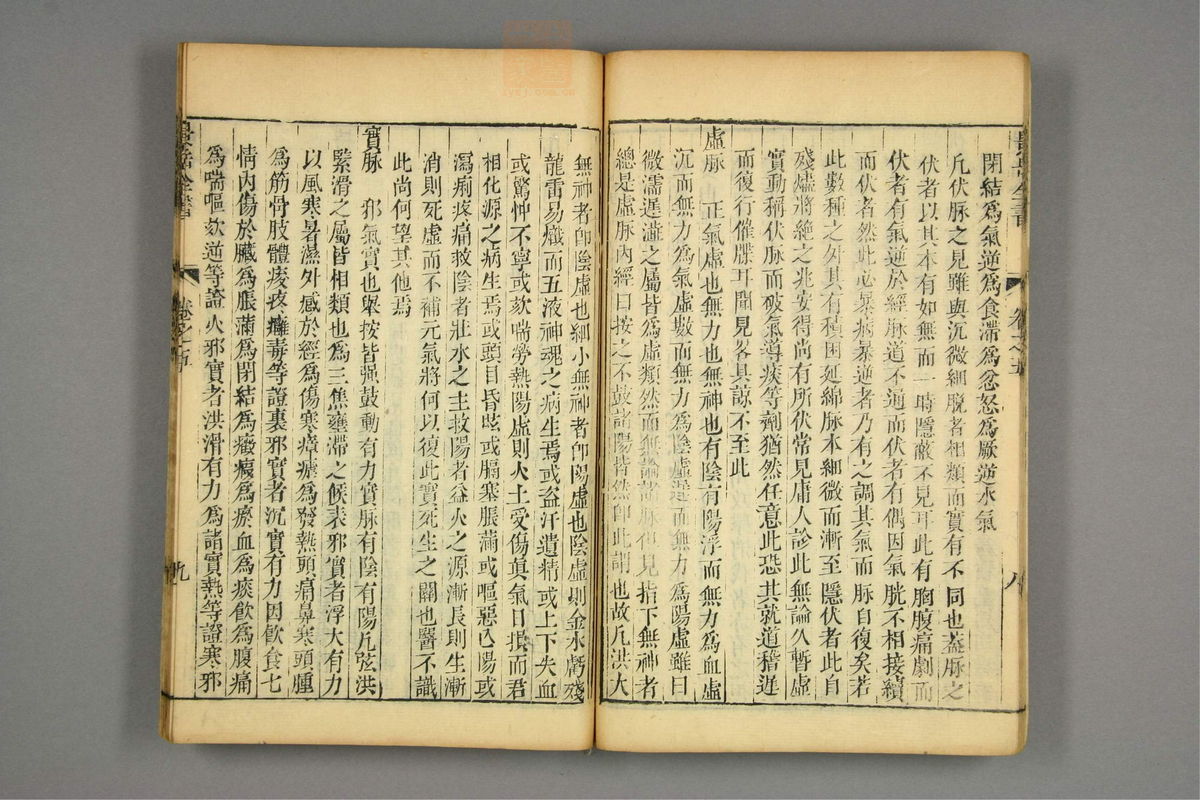 閉結爲氣逆爲食滯爲忿怒爲厥逆水氣
凡伏脉之見雖與沉微細脫者相類而實有不同也蓋脉之
伏者以其本有如無而一時隱蔽不見耳此有胸腹痛劇而
伏者有氣逆於經脉道不通而伏者有偶因氣脫不相接續
而伏者然此必暴病暴逆者乃有之調其氣而脉自復矣若
此數種之外其有積困延綿脉本細微而漸至隱伏者此自
殘燼將絶之兆安得尚有所伏常見庸人診此無論久暫虛
實動稱伏脉而破氣導痰等劑猶然任意此恐其就道稽遲
而復行催牒耳聞見畧具諒不至此
虛脉 正氣虛也無力也無神也有陰有陽浮而無力爲血虛
沉而無力爲氣虛數而無力爲陰虛遲而無力爲陽虛雖曰
微濡遲濇之屬皆爲虛類然而無論諸脉但見指下無神者
總是虛脉內經曰按之不鼓諸陽皆然卽此謂也故凡洪大
無神者卽陰虛也細小無神者卽陽虛也陰虛則金水虧殘
龍雷易熾而五液神魂之病生焉或盜汗遺精或上下失血
或驚忡不寧或欬喘勞熱陽虛則火土受傷眞氣日損而君
相化源之病生焉或頭目昏眩或膈塞脹滿或嘔惡亡陽或
瀉痢疼痛救陰者壯水之主救陽者益火之源漸長則生漸
消則死虛而不補元氣將何以復此實死生之關也醫不識
此尚何望其他焉
實脉 邪氣實也舉按皆强鼓動有力實脉有陰有陽凡弦洪
緊滑之屬皆相類也爲三焦壅滯之候表邪實者浮大有力
以風寒暑濕外感於經爲傷寒瘴瘧爲發熱頭痛鼻塞頭腫
爲筋骨肢體痠疼癰毒等證裏邪實者沉實有力因飲食七
情內傷於臟爲脹滿爲閉結爲癥瘕爲瘀血爲痰飲爲腹痛
爲喘嘔欬逆等證火邪實者洪滑有力爲諸實熱等證寒邪
景岳全書
卷之五
八
景岳全書
卷之五
九